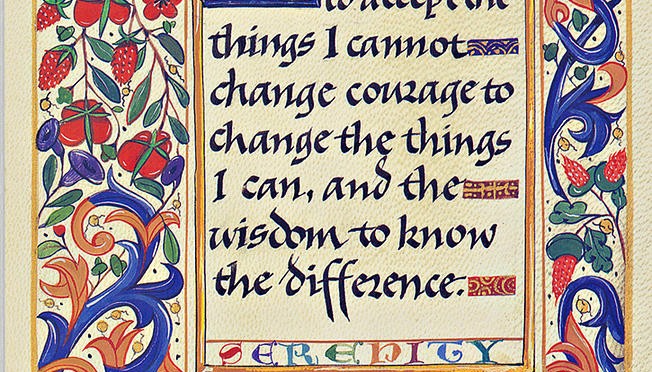 to accept the
things I cannot
change courage to
change the things
I can, and the
wisdom to know
the difference.
SERENITY